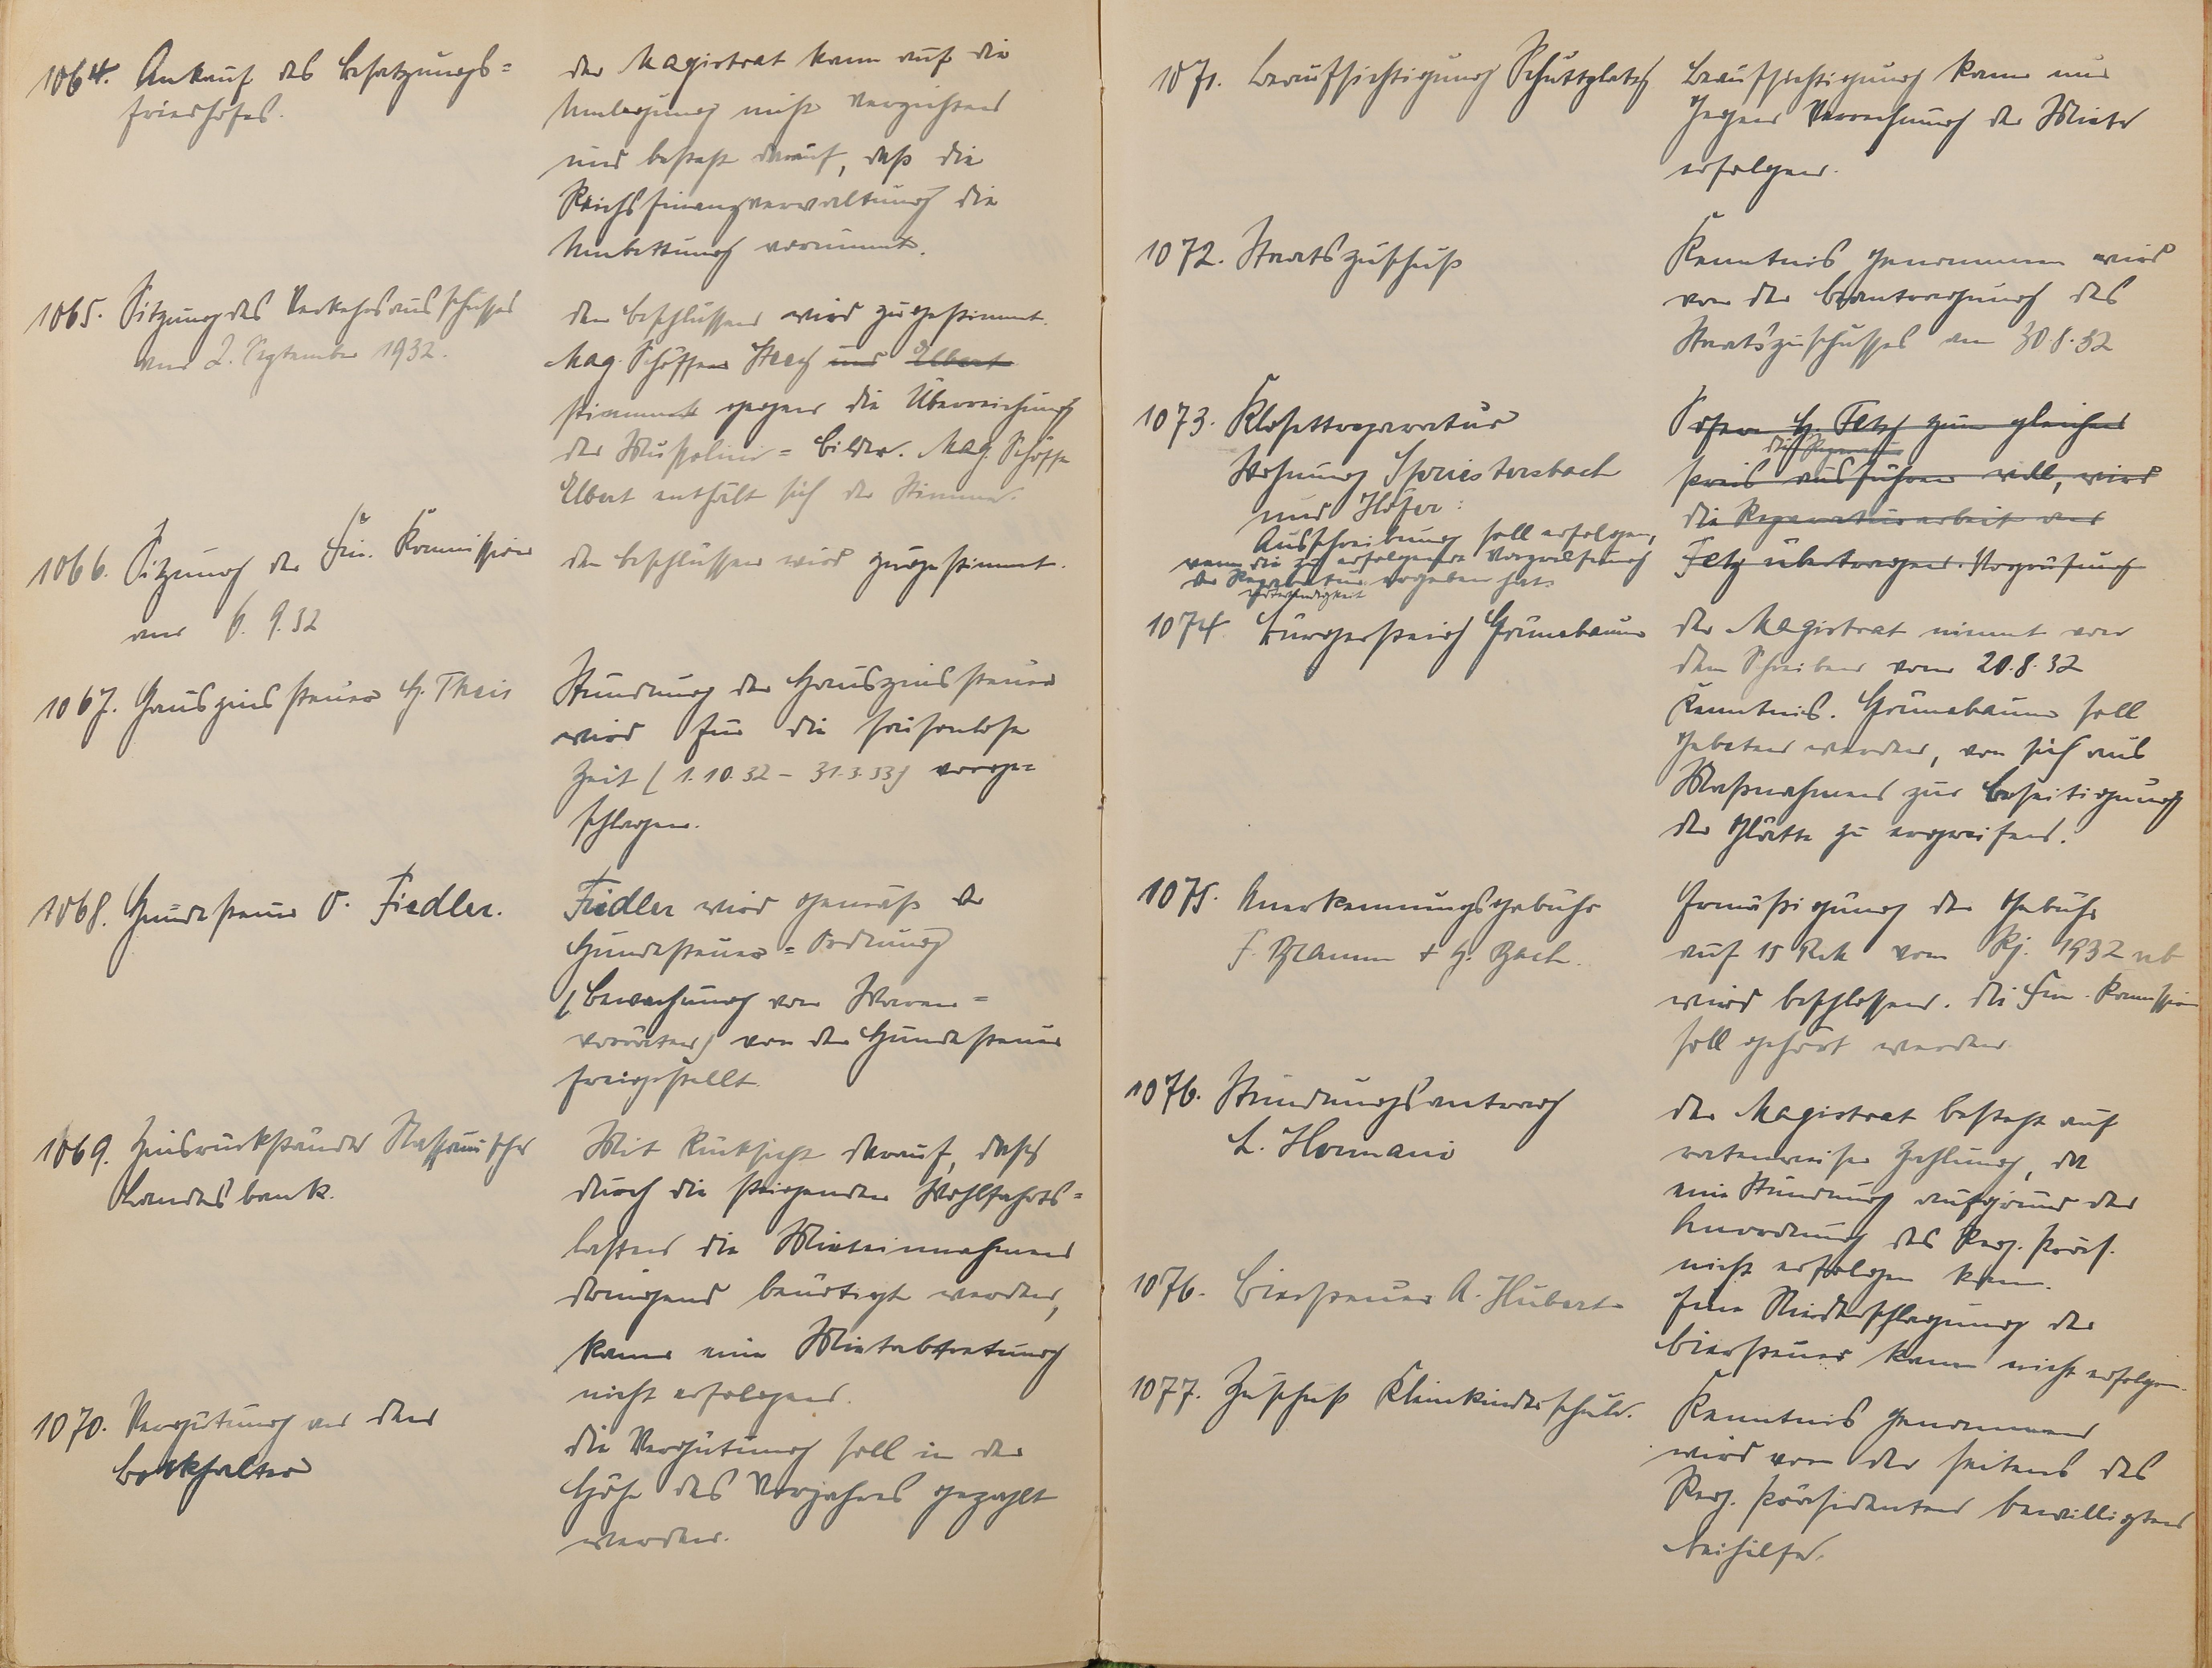 1064. Ankauf des Besatzungs=
friedhofes.
Der Magistrat kann auf die
Umlegung nicht verzichten
und besteht darauf, daß die
Reichsfinanzverwaltung die
Umbettung vornimmt.
1065. Sitzung des Verkehrsausschusses
vom 2. September 1932.
Den Beschlüssen wird zugestimmt.
Mag. Schöffen und Elbert
stimmt gegen die Überreichung
der Mussolini=Bilder. Mag. Schöffe
Elbert enthält sich der Stimme.
1066. Sitzung der Fin. Kommission
vom 6.9.32
Den Beschlüssen wird zugestimmt.
1067. Hauszinssteuer H. Theis
Stundung der Hauszinssteuer
wird für die saisonlose
Zeit (1.10.32 – 31.3.33) vorge=
schlagen.
1068. Hundesteuer O. Fiedler.
Fiedler wird gemäß der
Hundesteuer=Ordnung
(Bewachung von Waren=
vorräten) von der Hundesteuer
freigestellt
1069. Zinsrückstände Nassauische
Landesbank.
Mit Rücksicht darauf, dass
durch die steigenden Wohlfahrts=
lasten die Mieteinnahmen
dringend benötigt werden,
kann eine Mietabtretung
nicht erfolgen.
1070. Vergütung an den
Bockhalter
Die Vergütung soll in der
Höhe des Vorjahres gezahlt
werden.
1071. Beaufsichtigung Schuttplatz
Beaufsichtigung kann nur
gegen Verrechnung der Miete
erfolgen.
1072. Staatszuschuß
Kenntnis genommen wird
von der Beantragung des
Staatszuschusses am 30.8.32
1073. Klosettreparatur
Wohnung Spriestersbach
und Höfer:
Ausschreibung soll erfolgen,
wenn die zu erfolgende Vorprüfung
der Reparatur ergeben hat.
Notwendigkeit
Sofern H. Fetz zum gleichen
die Reparatur
Preis ausführen will, wird
die Reparaturarbeit an
Fetz übertragen. Vorprüfung
1074. Bürgersteig Grünebaum
Der Magistrat nimmt von
dem Schreiben vom 20.8.32
Kenntnis. Grünebaum soll
gebeten werden, von sich aus
Maßnahmen zur Beseitigung
der Glätte zu ergreifen.
1075. Anerkennungsgebühr
F. Bramm + H. Bach.
Ermäßigung der Gebühr
auf 15 RM vom Rj. 1932 ab
wird beschlossen. Die Fin. Kommission
soll gehört werden.
1076. Stundungsantrag
L. Hermani
Der Magistrat besteht auf
ratenweiser Zahlung, da
eine Stundung aufgrund der
Anordnung des Reg. Präs.
nicht erfolgen kann.
1076. Biersteuer A. Hubert
Eine Niederschlagung der
Biersteuer kann nicht erfolgen.
1077. Zuschuß Kleinkinderschule.
Kenntnis genommen
wird von der seitens des
Reg. Präsidenten bewilligten
Beihilfe.